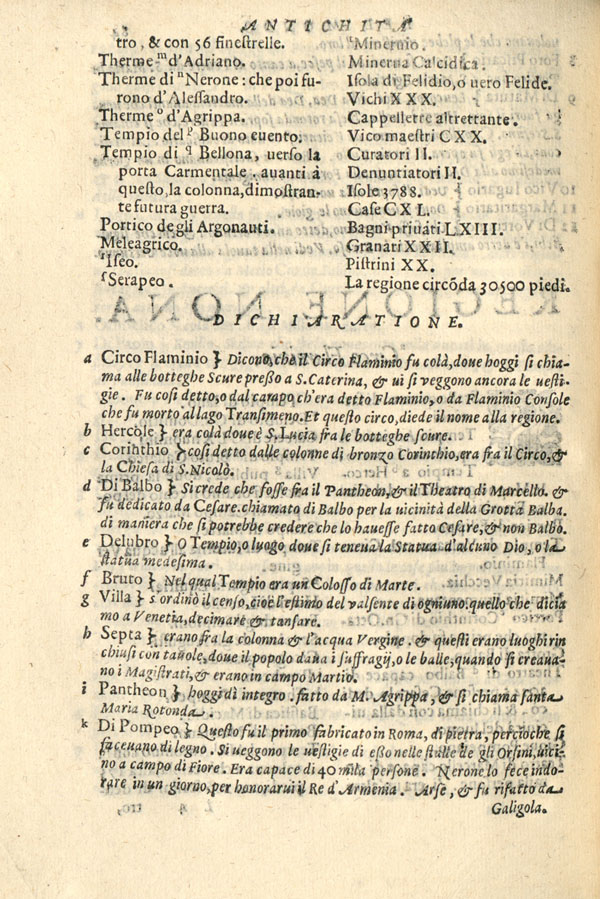 ANTICHITA
tro, & con 56 finestrelle.
Therme m d'Adriano.
Therme di n Nerone: che poi fu-
rono d'Alessandro.
Therme o d'Agrippa.
Tempio del p Buono euento.
Tempio di q Bellona, uerso la
porta Carmentale. auanti à
questo, la colonna, dimostran-
te futura guerra.
Portico degli Argonauti.
Meleagrico.
r Iseo.
s Serapeo.
t Mineruio.
Minerua Calcidica.
Isola di Felidio, o uero Felide.
Vichi XXX.
Cappellette altrettante.
Vico maestri CXX.
Curatori II.
Denuntiatori II.
Isole 3788.
Case CXL.
Bagni priuati LXIII.
Granari XXII.
Pistrini XX.
La regione circõda 30500 piedi.
DICHIARATIONE.
a Circo Flaminio } Dicono, che il Circo Flaminio fu colà, doue hoggi si chia-
ma alle botteghe Scure presso a S. Caterina, & ui si veggono ancora le uesti-
gie. Fu cosi detto, o dal campo ch'era detto Flaminio, o da Flaminio Console
che fu morto al lago Transimeno. Et questo circo, diede il nome alla regione.
b Hercole } era colà doue è S. Lucia fra le botteghe scure.
c Corinthio } cosi detto dalle colonne di bronzo Corinthio, era fra il Circo, &
la Chiesa di S. Nicolò.
d Di Balbo } Si crede che fosse fra il Pantheon, & il Theatro di Marcello. &
fu dedicato da Cesare. chiamato di Balbo per la uicinità della Grotta Balba.
di maniera che si potrebbe credere che lo hauesse fatto Cesare, & non Balbo.
e Delubro } O Tempio, o luogo doue si teneua la Statua d'alcuno Dio, o la
statua medesima.
f Bruto } Nel qual Tempio era un Colosso di Marte.
g Villa } s'ordinò il censo, cioè l'estimo del valsente di ogniuno. quello che dicia
mo a Venetia, decimare & tansare.
h Septa } erano fra la colonna & l'acqua Vergine. & questi erano luoghi rin
chiusi con tauole, doue il popolo daua i suffragij, o le balle, quando si creaua-
no i Magistrati, & erano in campo Martio.
i Pantheon } hoggi di integro. fatto da M. Agrippa, & si chiama santa
Maria Rotonda.
k Di Pompeo } Questo fu il primo fabricato in Roma, di pietra, percioche si
faceuano di legno. Si ueggono le uestigie di esso nelle stalle de gli Orsini, uici-
no a campo di Fiore. Era capace di 40 mila persone. Nerone lo fece indo-
rare in un giorno, per honorarui il Re d'Armenia. Arse, & fu rifatto da
Galigola.